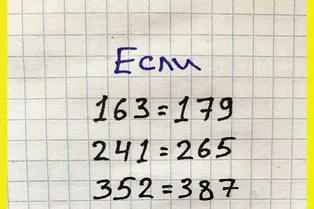 Если
163=179
241=265
352=387